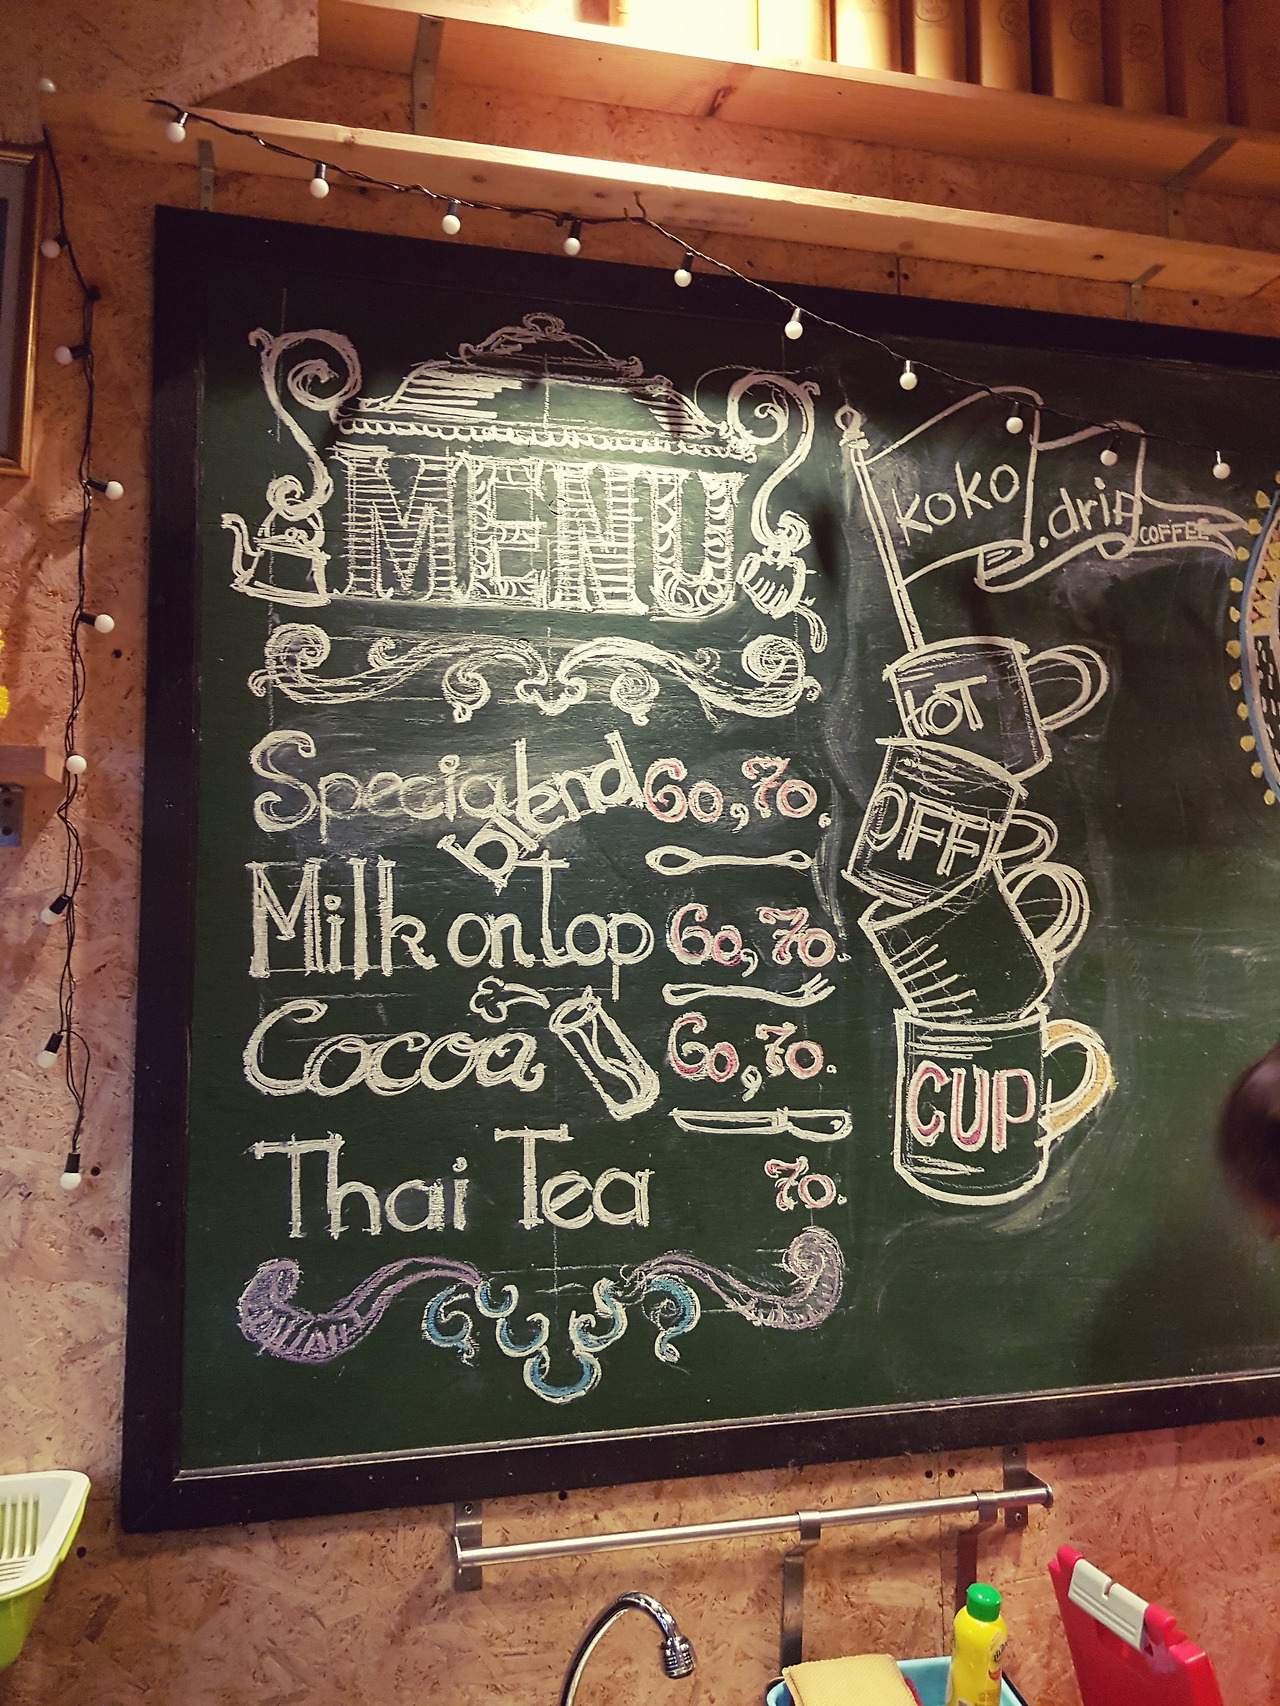 MENU
Special blend 60, 70.
Milk on top 60, 70.
Cocoa 60, 70.
Thai Tea 70.
koko
.drip
COFFEE
HOT
OFF
CUP